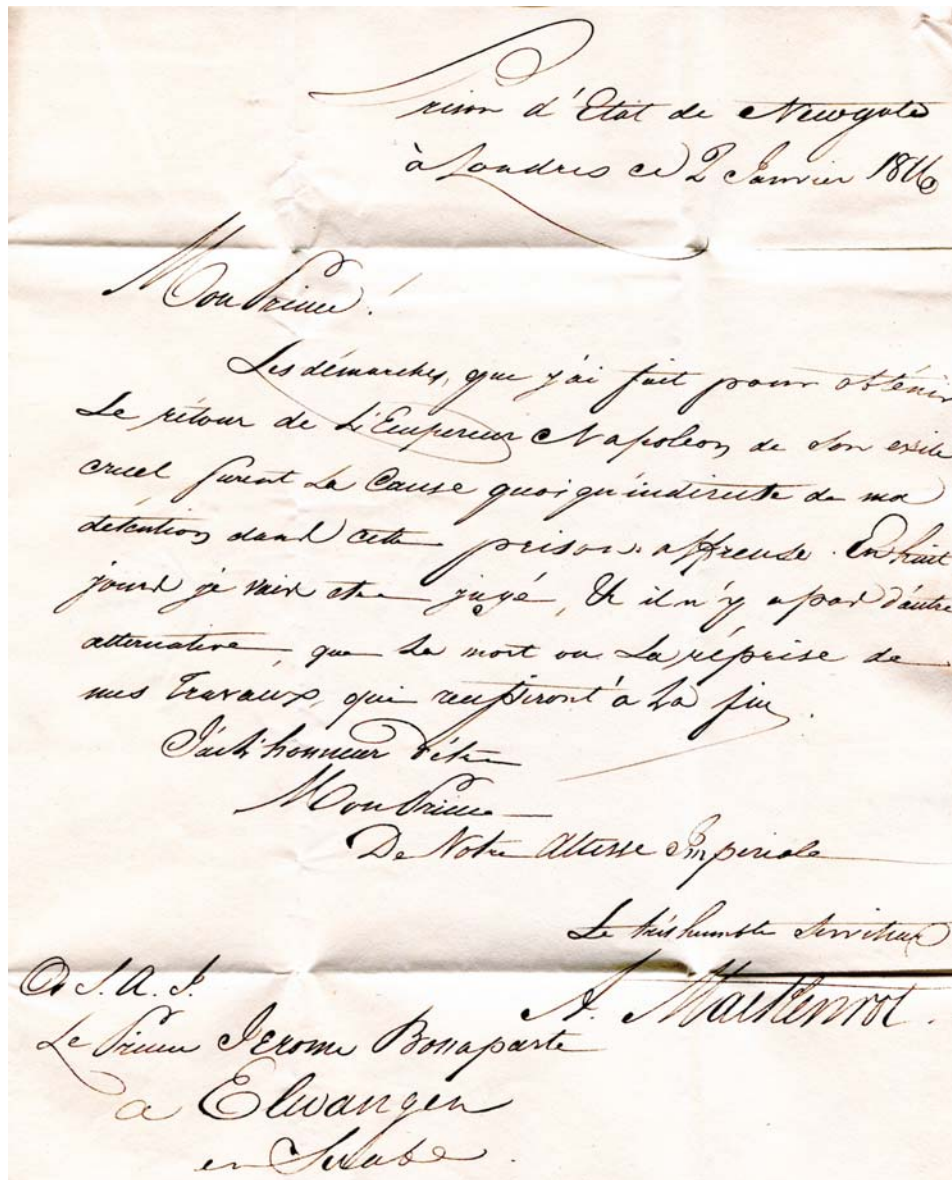 Prison d'Etat de Newgate
à Londres ce 2 Janvier 1816
Mon Prince!
Les démarches, que j'ai fait pour obténir
Le rétour de L'Empereur Napoleon de Son exile
cruel furent La Cause quoiqu'indirecte de ma
détention dans cette prison affreuse. En huit
jours je vais etre jugé, & il n'y a pas d'autre
alternative que La mort ou La réprise de
mes Travaux, qui reussiront à La fin.
J'ai L'honneur d'être
Mon Prince
De Votre Altesse Imperiale
Le très humble Serviteur
A. Mackenrot.
A S. A. I.
Le Prince Jerome Bonaparte
a Elwangen
en Suabe.